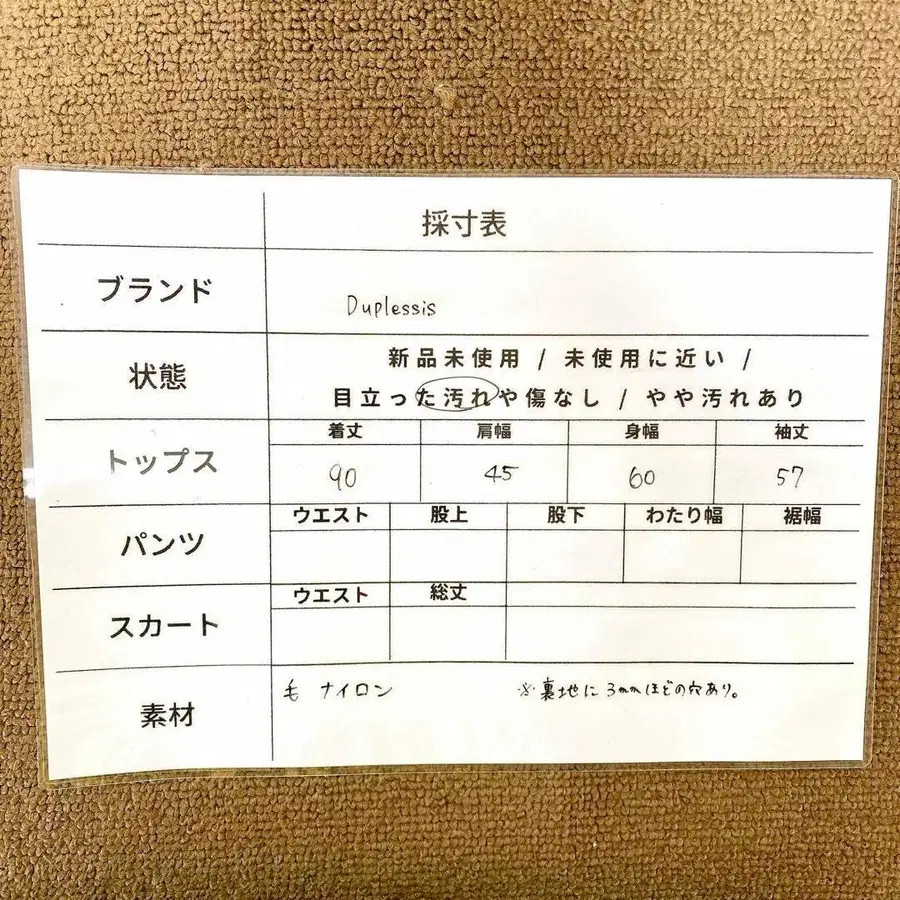 採寸表
ブランド
Duplessis
状態
新品未使用 / 未使用に近い /
目立った汚れや傷なし / やや汚れあり
トップス
着丈 肩幅 身幅 袖丈
90 45 60 57
パンツ
ウエスト 股上 股下 わたり幅 裾幅
スカート
ウエスト 総丈
素材
毛 ナイロン ※裏地に3mmほどの穴あり。